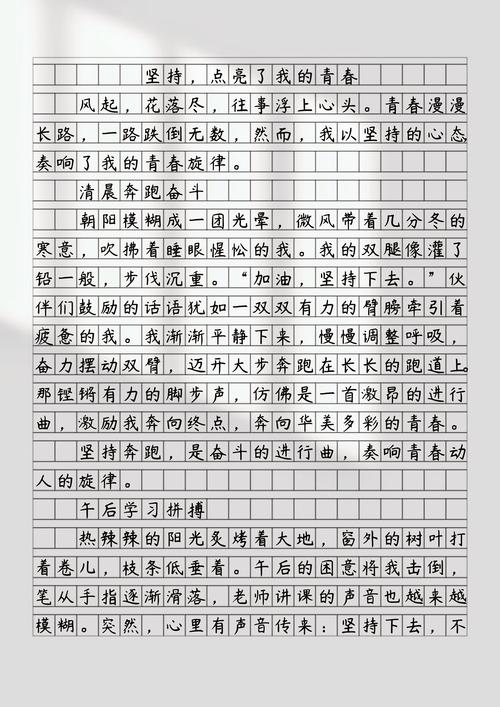 坚持，点亮了我的青春
风起，花落尽，往事浮上心头。青春漫漫
长路，一路跌倒无数，然而，我以坚持的心态
奏响了我的青春旋律。
清晨奔跑奋斗
朝阳模糊成一团光晕，微风带着几分冬的
寒意，吹拂着睡眼惺忪的我。我的双腿像灌了
铅一般，步伐沉重。“加油，坚持下去。”伙
伴们鼓励的话语犹如一双双有力的臂膀牵引着
疲惫的我。我渐渐平静下来，慢慢调整呼吸，
奋力摆动双臂，迈开大步奔跑在长长的跑道上。
那铿锵有力的脚步声，仿佛是一首激昂的进行
曲，激励我奔向终点，奔向华美多彩的青春。
坚持奔跑，是奋斗的进行曲，奏响青春动
人的旋律。
午后学习拼搏
热辣辣的阳光炙烤着大地，窗外的树叶打
着卷儿，枝条低垂着。午后的困意将我击倒，
笔从手指逐渐滑落，老师讲课的声音也越来越
模糊。突然，心里有声音传来：坚持下去，不